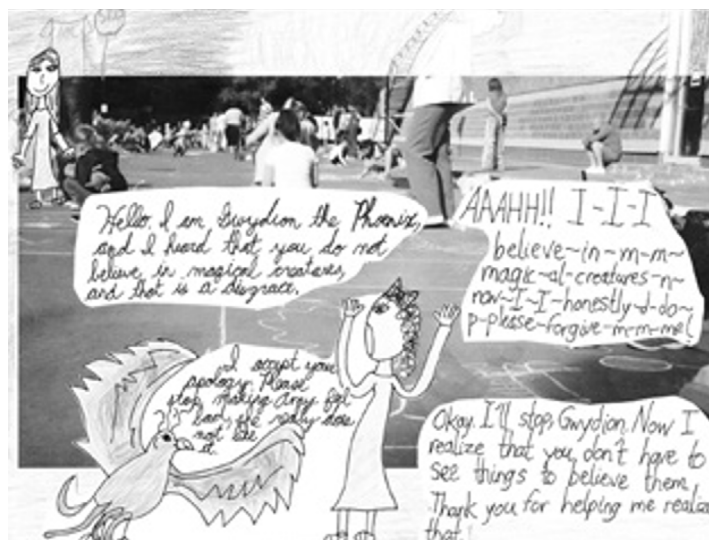 Hello. I am Gwydion the Phoenix,
and I heard that you do not
believe in magical creatures,
and that is a disgrace.
AAAHH!! I-I-I
believe-in-m-m-
magic-al-creatures-n-
now-I-I-honestly-d-do-
p-please-forgive-m-m-me!
I accept your
apology. Please
stop making Amy feel
bad, she really does
not like
it.
Okay. I'll stop, Gwydion. Now I
realize that you don't have to
see things to believe them.
Thank you for helping me realize
that.